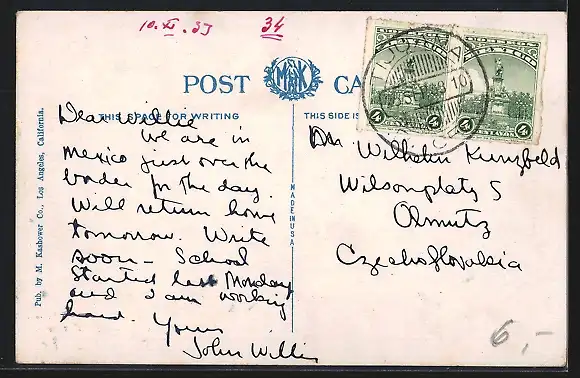 10.XI.37 34
POST CA
MKK
THIS SPACE FOR WRITING
THIS SIDE IS
Dear Willie
We are in
Mexico just over the
border for the day.
Will return home
tomorrow. Write
soon - School
Started last Monday
and I am working
hard. Yours
John Willis
Wilhelm Kunzfeld
Wilsonplatz 5
Olmutz
Czechoslovakia
MADE IN USA
Pub. by M. Kashower Co., Los Angeles, California.
4 4
6,-